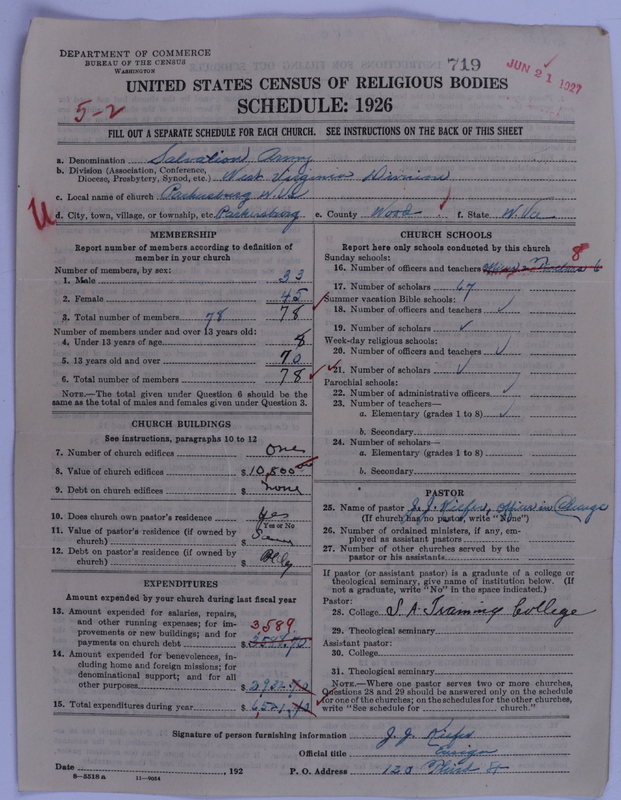 DEPARTMENT OF COMMERCE
BUREAU OF THE CENSUS
WASHINGTON
719
JUN 21 1927
UNITED STATES CENSUS OF RELIGIOUS BODIES
5-2
SCHEDULE: 1926
FILL OUT A SEPARATE SCHEDULE FOR EACH CHURCH. SEE INSTRUCTIONS ON THE BACK OF THIS SHEET
a. Denomination Salvation Army
b. Division (Association, Conference, Diocese, Presbytery, Synod, etc.) West Virginia Division
c. Local name of church Parkersburg W. Va
U
d. City, town, village, or township, etc. Parkersburg e. County Wood f. State W. Va
MEMBERSHIP
Report number of members according to definition of
member in your church
Number of members, by sex:
1. Male 33
2. Female 45
3. Total number of members 78 78
Number of members under and over 13 years old:
4. Under 13 years of age 8
5. 13 years old and over 70
6. Total number of members 78
NOTE.—The total given under Question 6 should be
same as the total of males and females given under Question 3.
CHURCH BUILDINGS
See instructions, paragraphs 10 to 12
7. Number of church edifices One
8. Value of church edifices $10,800
9. Debt on church edifices $ none
10. Does church own pastor's residence Yes
Yes or No
11. Value of pastor's residence (if owned by
church) $
12. Debt on pastor's residence (if owned by
church) $
EXPENDITURES
Amount expended by your church during last fiscal year
13. Amount expended for salaries, repairs,
and other running expenses; for im- 3589
provements or new buildings; and for
payments on church debt $
14. Amount expended for benevolences, in-
cluding home and foreign missions; for
denominational support; and for all
other purposes $2932.
15. Total expenditures during year $6521.
CHURCH SCHOOLS
Report here only schools conducted by this church
Sunday schools: 8
16. Number of officers and teachers 6
17. Number of scholars 67
Summer vacation Bible schools:
18. Number of officers and teachers
19. Number of scholars
Week-day religious schools:
20. Number of officers and teachers
21. Number of scholars
Parochial schools:
22. Number of administrative officers
23. Number of teachers—
a. Elementary (grades 1 to 8)
b. Secondary
24. Number of scholars—
a. Elementary (grades 1 to 8)
b. Secondary
PASTOR
25. Name of pastor J. J. Kiefer, Officer in Charge
(If church has no pastor, write "None")
26. Number of ordained ministers, if any, em-
ployed as assistant pastors
27. Number of other churches served by the
pastor or his assistants
If pastor (or assistant pastor) is a graduate of a college or
theological seminary, give name of institution below. (If
not a graduate, write "No" in the space indicated.)
Pastor:
28. College S. A. Training College
29. Theological seminary
Assistant pastor:
30. College
31. Theological seminary
NOTE.—Where one pastor serves two or more churches,
Questions 28 and 29 should be answered only on the schedule
for one of the churches; on the schedules for the other churches,
write "See schedule for church."
Signature of person furnishing information J. J. Kiefer
Official title Ensign
Date , 192 P. O. Address 120 Third St
8—5518a 11—9054